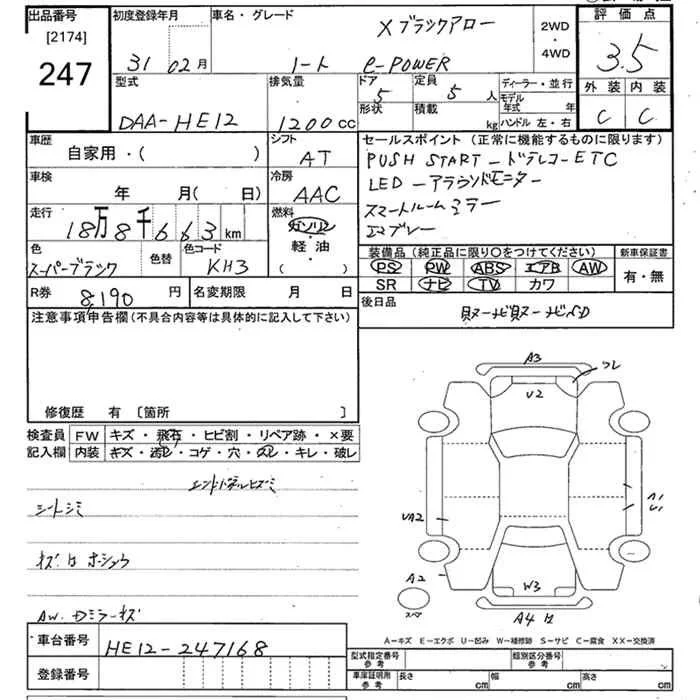 出品番号
[2174]
247
初度登録年月
31 02月
車名・グレード
X ブラックアロー
ノート e-POWER
2WD
・
4WD
評価点
3.5
外装 内装
C C
型式
DAA-HE12
排気量
1200cc
ドア
5
定員
5人
形状
積載
kg
ディーラー・並行
モデル年式 年
ハンドル 左・右
車歴
自家用・( )
シフト
AT
車検
年 月( 日)
冷房
AAC
走行
18万8千663km
燃料
ガソリン
軽・油
( )
色
スーパーブラック
色替
色コード
KH3
R券 8,190 円
名変期限 月 日
セールスポイント(正常に機能するものに限ります)
PUSH START - ドラレコ - ETC
LED - アラウンドモニター
スマートルームミラー
エマブレー
装備品(純正品に限り○をつけてください)
PS PW ABS エアB AW
SR ナビ TV カワ
新車保証書
有・無
後日品
注意事項申告欄(不具合内容等は具体的に記入して下さい)
修復歴 有 〔箇所 〕
検査員
記入欄
FW キズ・飛石・ヒビ割・リペア跡・×要
内装 キズ・汚レ・コゲ・穴・スレ・キレ・破レ
シートシミ
キズ
AW. Dミラーキズ
A3
U2
UA2
A2
W3
A4
スペア
A-キズ E-エクボ U-凹み W-補修跡 S-サビ C-腐食 XX-交換済
車台番号 HE12-247168
登録番号
型式指定番号
参考
類別区分番号
参考
車庫証明用
参考
長さ cm 幅 cm 高さ cm